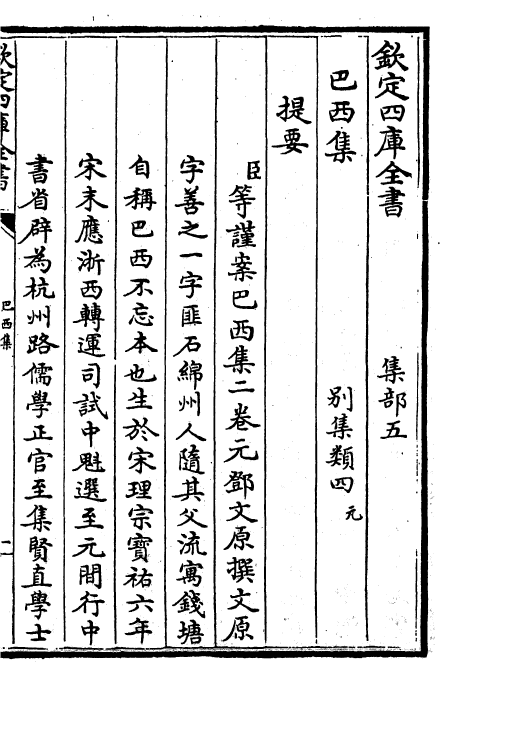 欽定四庫全書　集部五
巴西集　別集類四元
提要
臣等謹案巴西集二卷元鄧文原撰文原
字善之一字匪石綿州人隨其父流寓錢塘
自稱巴西不忘本也生於宋理宗寶祐六年
宋末應浙西轉運司試中魁選至元間行中
書省辟為杭州路儒學正官至集賢直學士
欽定四庫全書
巴西集